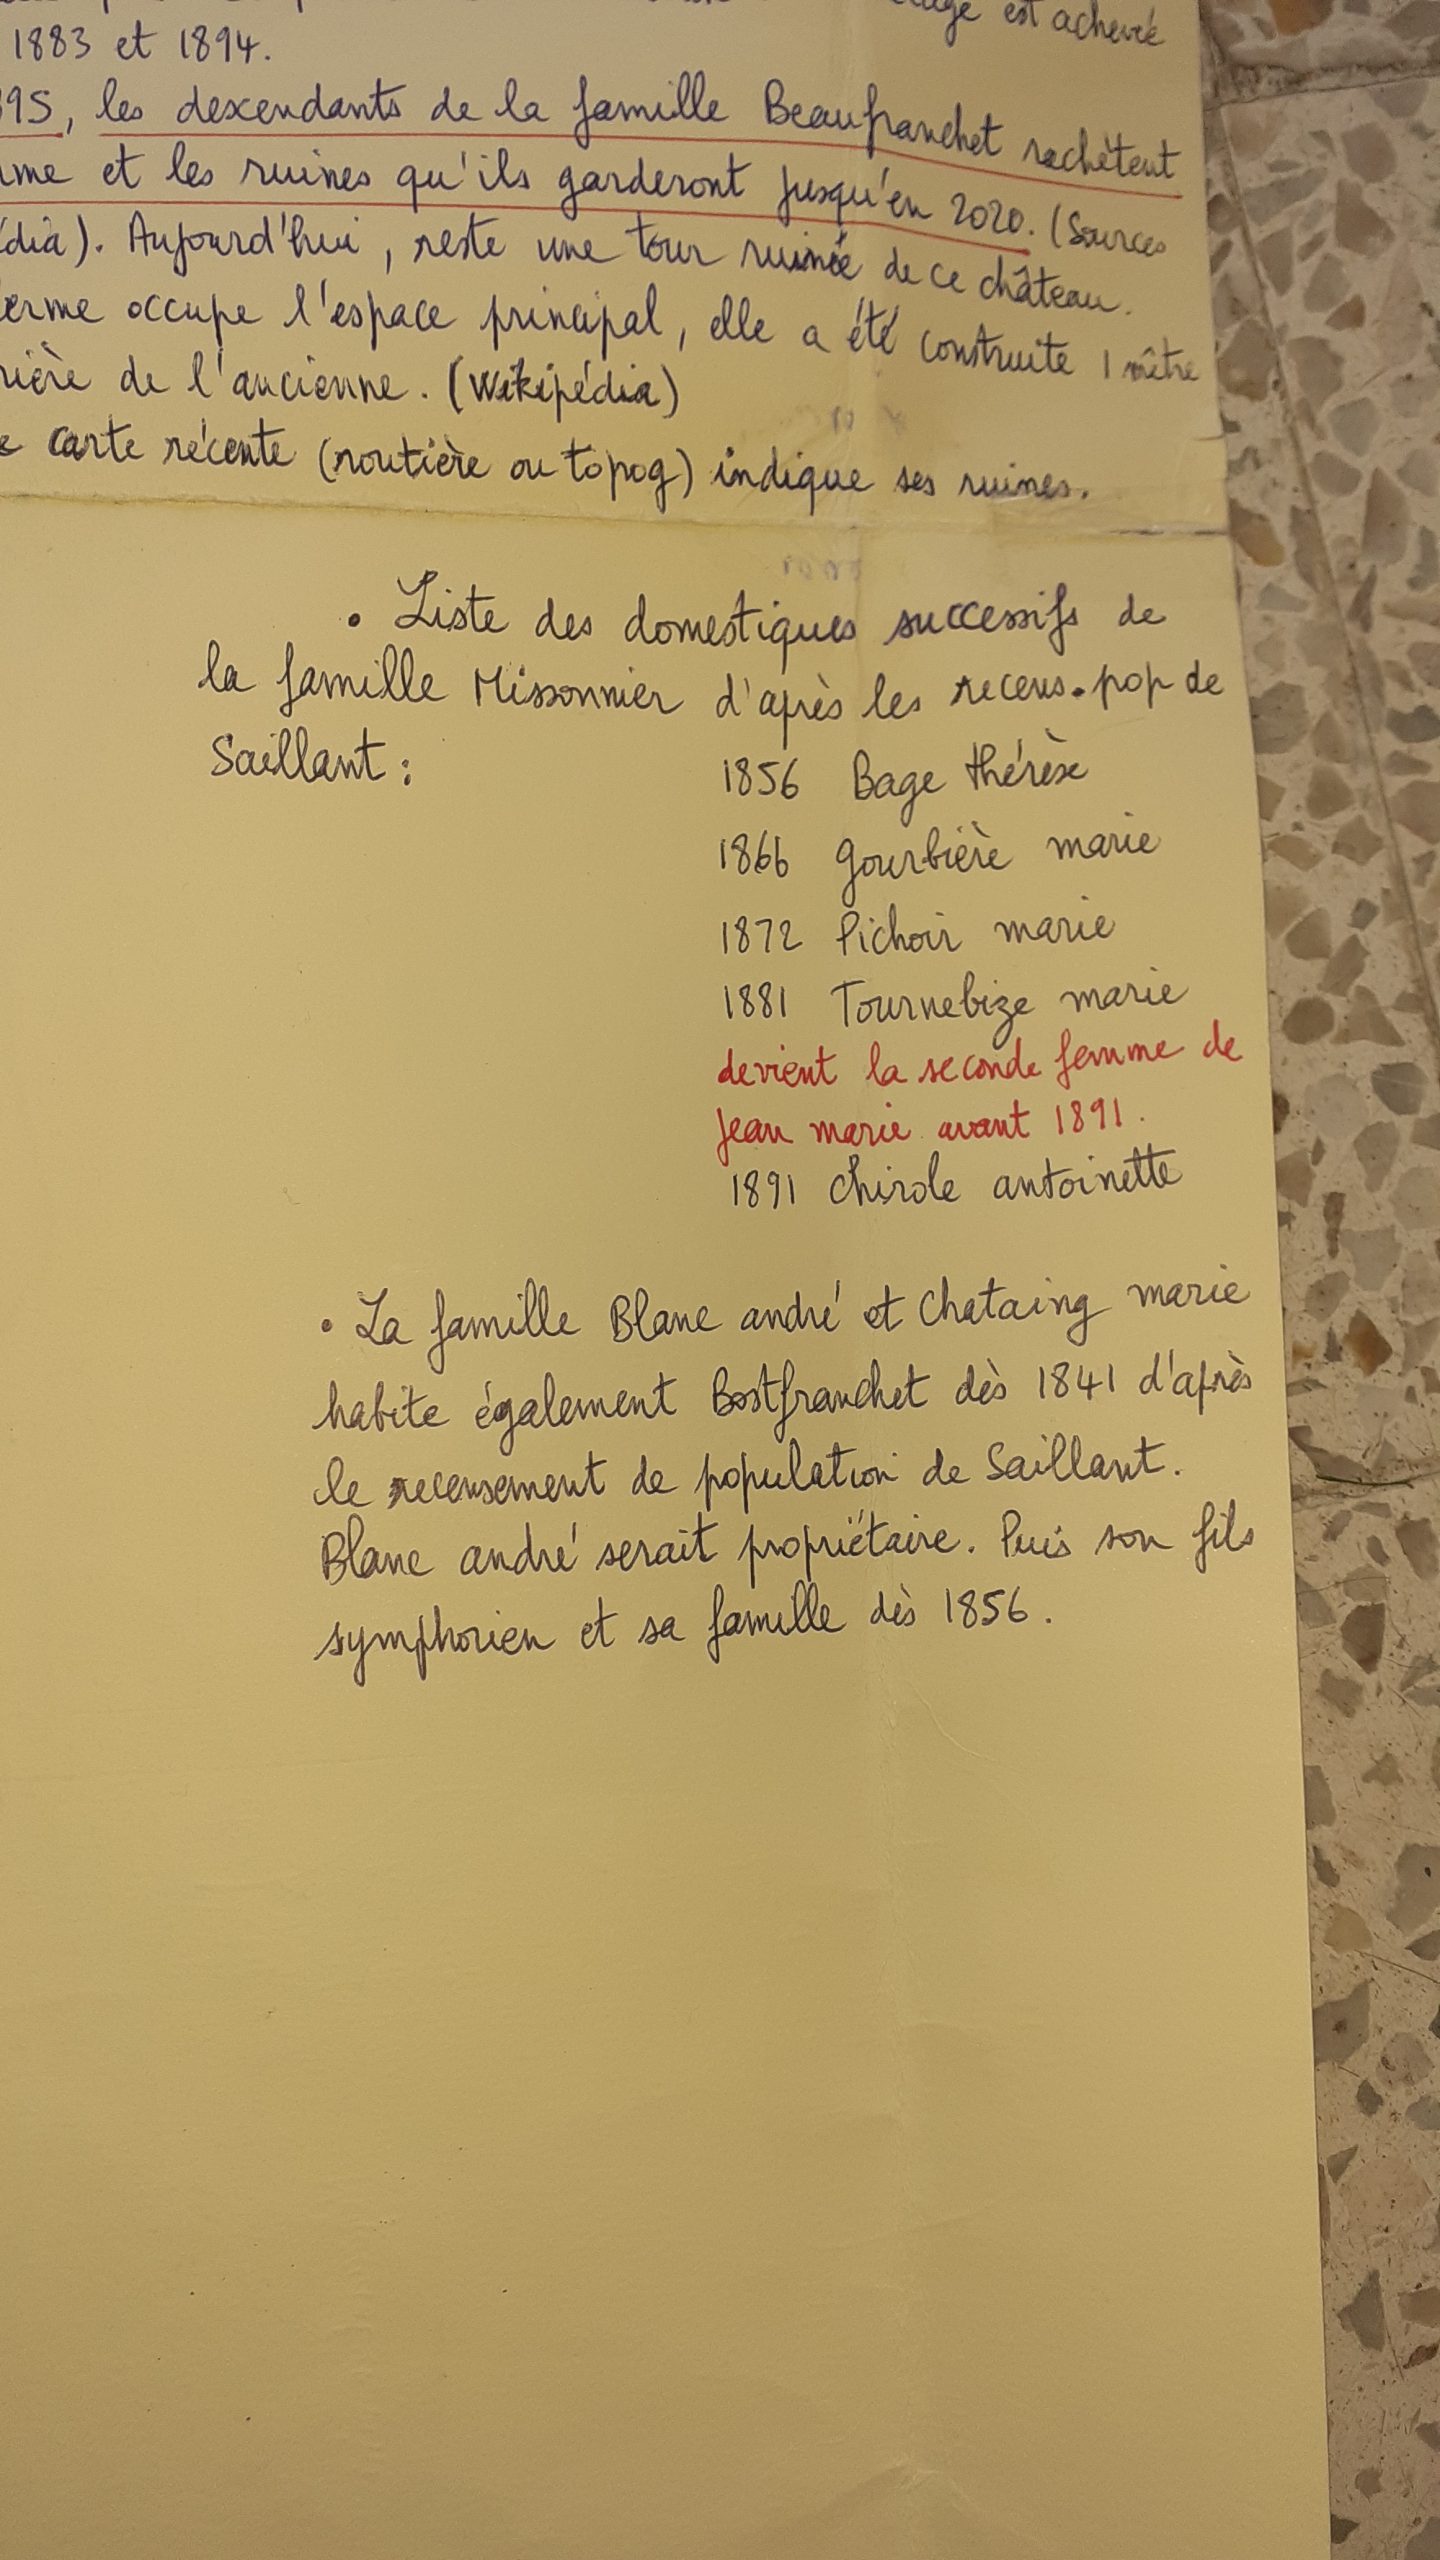 age est achevé
1883 et 1894.
95, les descendants de la famille Beaufranchet rachètent
me et les ruines qu'ils garderont jusqu'en 2020. (Sources
dia). Aujourd'hui, reste une tour ruinée de ce château.
ferme occupe l'espace principal, elle a été construite 1 mètre
rière de l'ancienne. (Wikipédia)
e carte récente (routière ou topog) indique ses ruines.
• Liste des domestiques successifs de
la famille Missonnier d'après les recens. pop de
Saillant :
1856 Bage thérèse
1866 gourbière marie
1872 Pichoir marie
1881 Tournebize marie
devient la seconde femme de
jean marie avant 1891.
1891 chirole antoinette
• La famille Blanc andré et Chataing marie
habite également Bostfranchet dès 1841 d'après
le recensement de population de Saillant.
Blanc andré serait propriétaire. Puis son fils
symphorien et sa famille dès 1856.